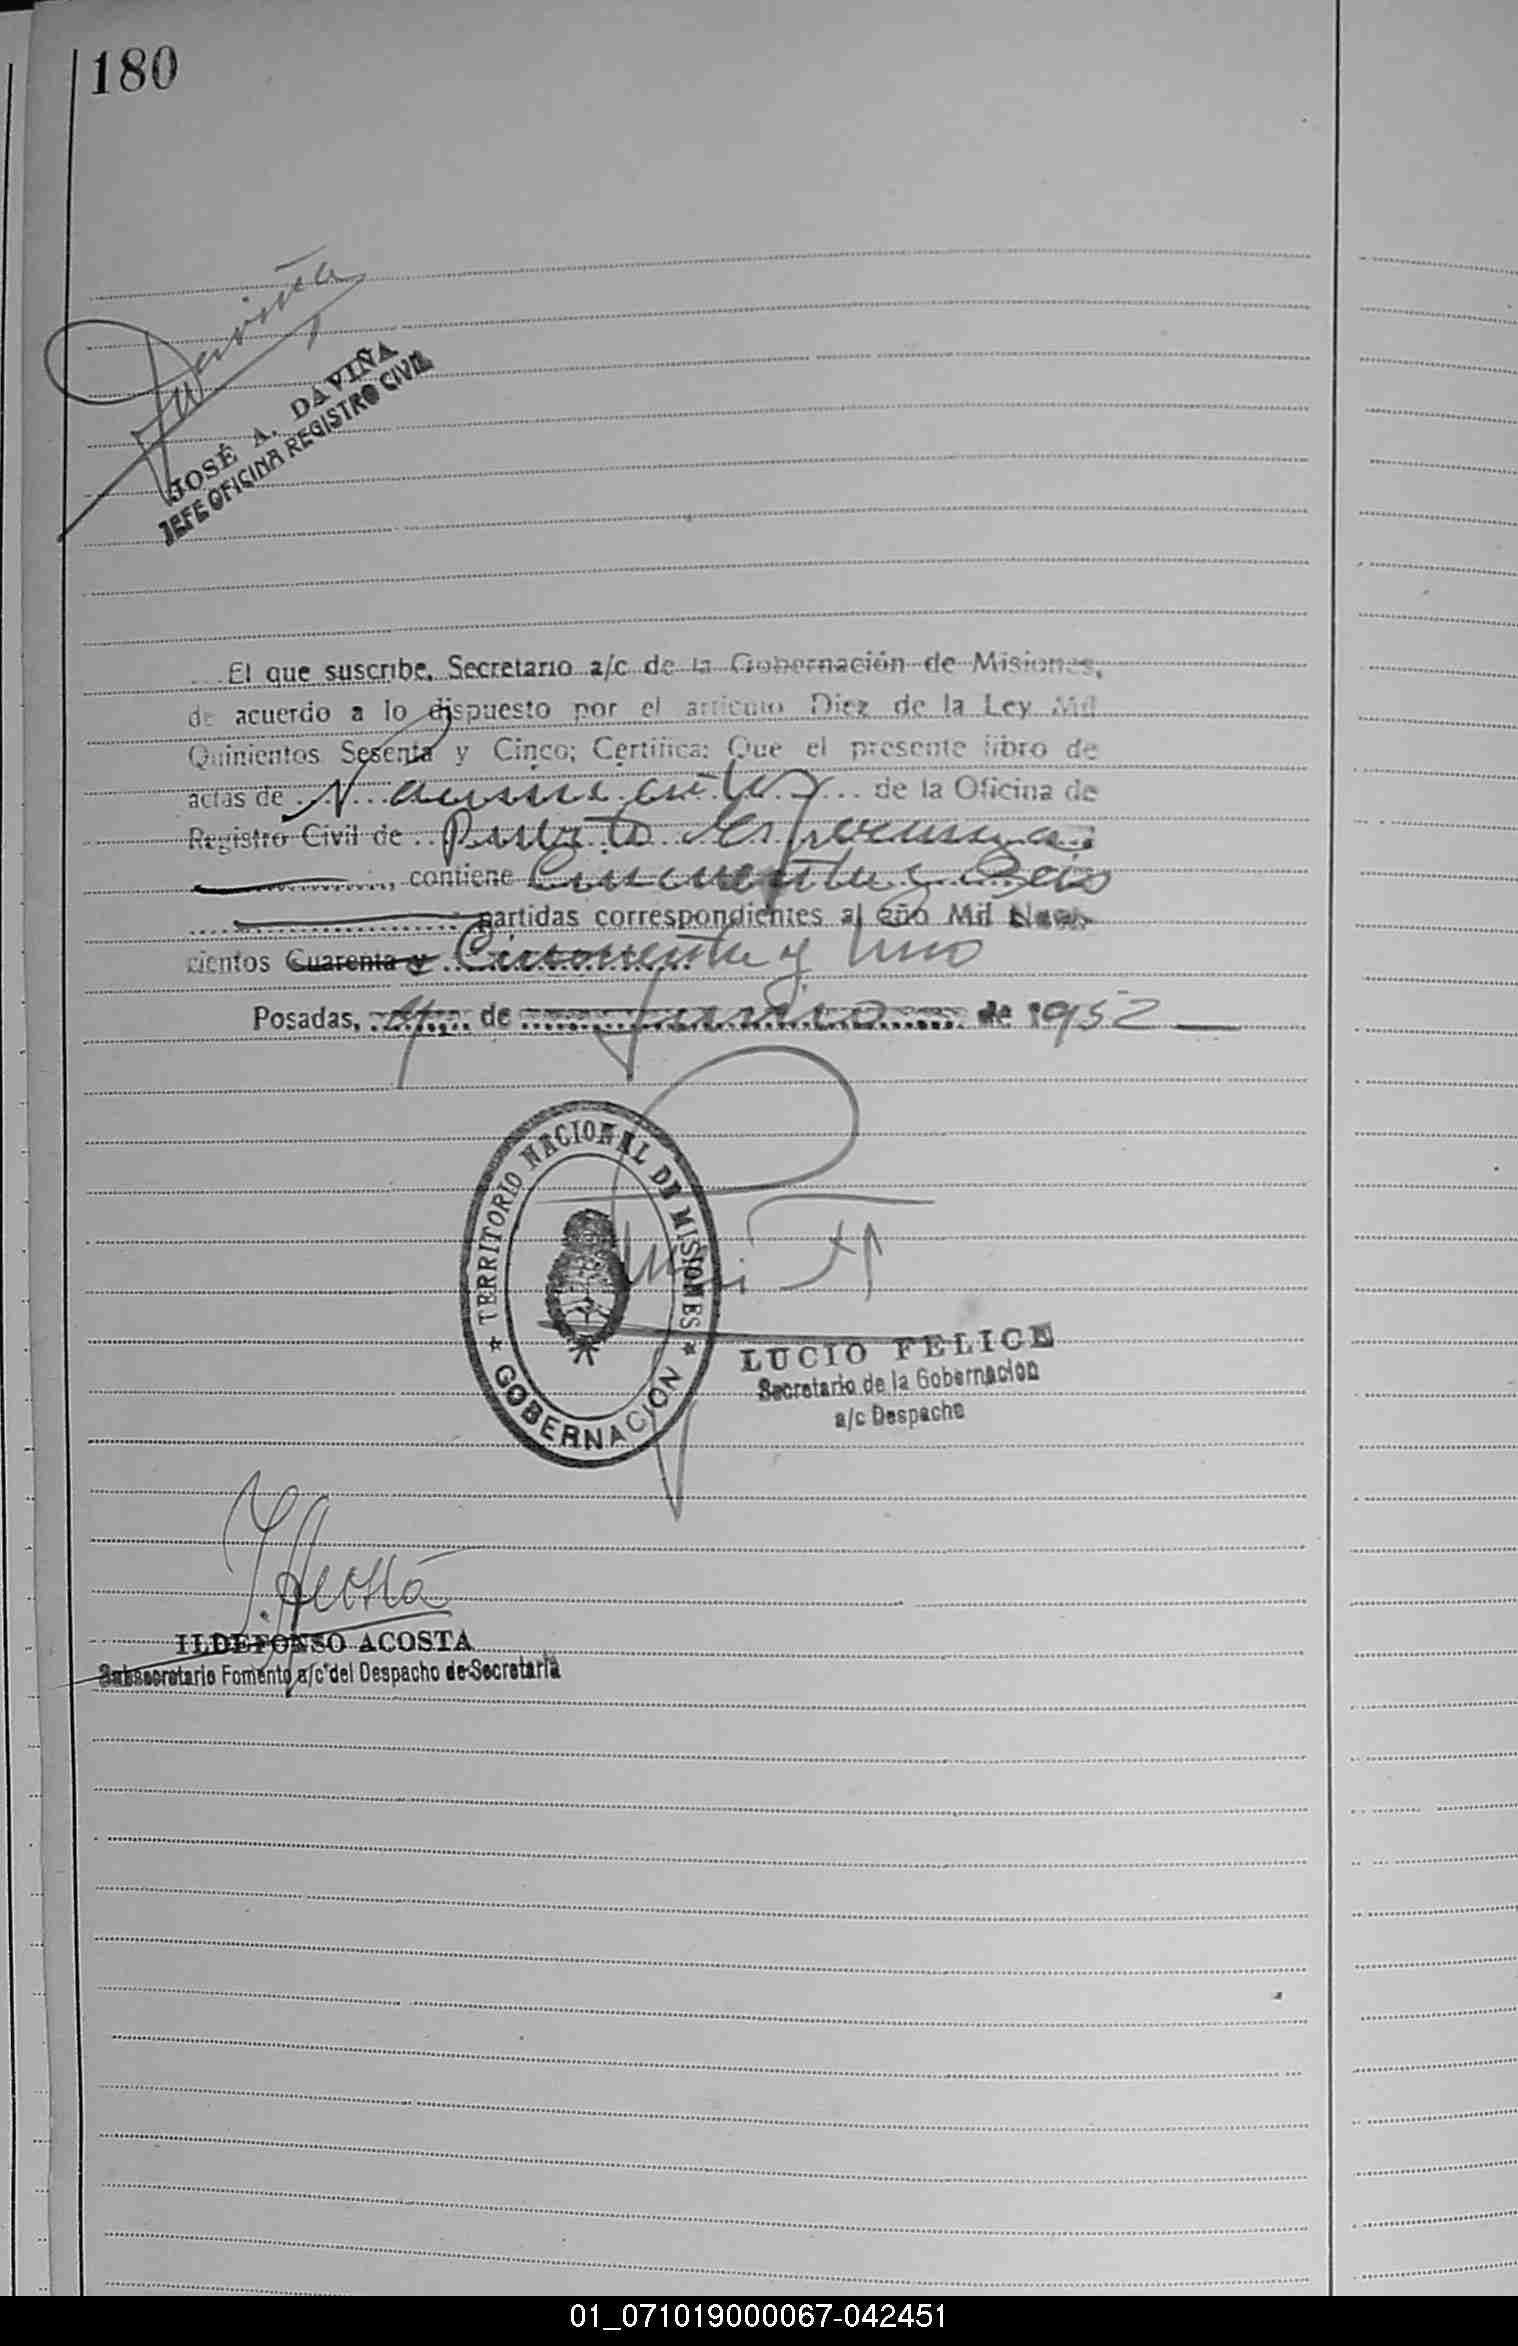 180
Daviña
JOSÉ A. DAVIÑA
JEFE OFICINA REGISTRO CIVIL
El que suscribe, Secretario a/c de la Gobernación de Misiones,
de acuerdo a lo dispuesto por el artículo Diez de la Ley Mil
Quinientos Sesenta y Cinco; Certifica: Que el presente libro de
actas de Nacimientos de la Oficina de
Registro Civil de Puerto Esperanza
, contiene Cincuenta y Seis
partidas correspondientes al año Mil Nove-
cientos Cuarenta y Cincuenta y Uno
Posadas, de Junio de 1952
TERRITORIO NACIONAL DE MISIONES
GOBERNACION
LUCIO FELICE
Secretario de la Gobernacion
a/c Despacho
I. Acosta
ILDEFONSO ACOSTA
Subsecretario Fomento a/c del Despacho de Secretaria
01_071019000067-042451